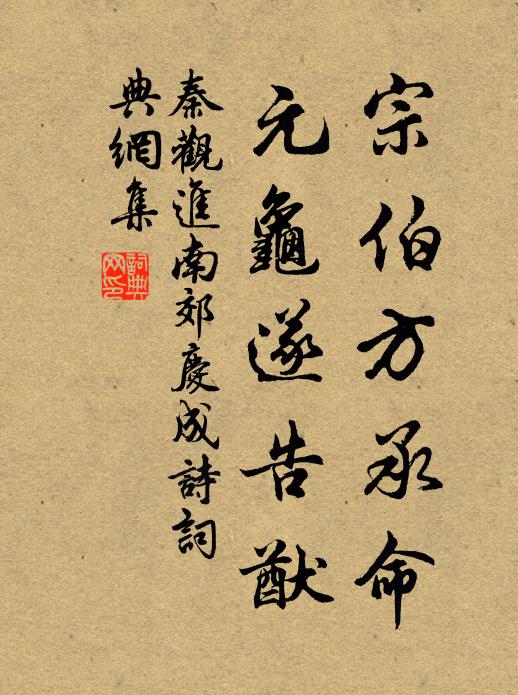 宗伯方承命
元龜遂告猷
秦觀進南郊慶成詩詞
典網集
詞典
网印